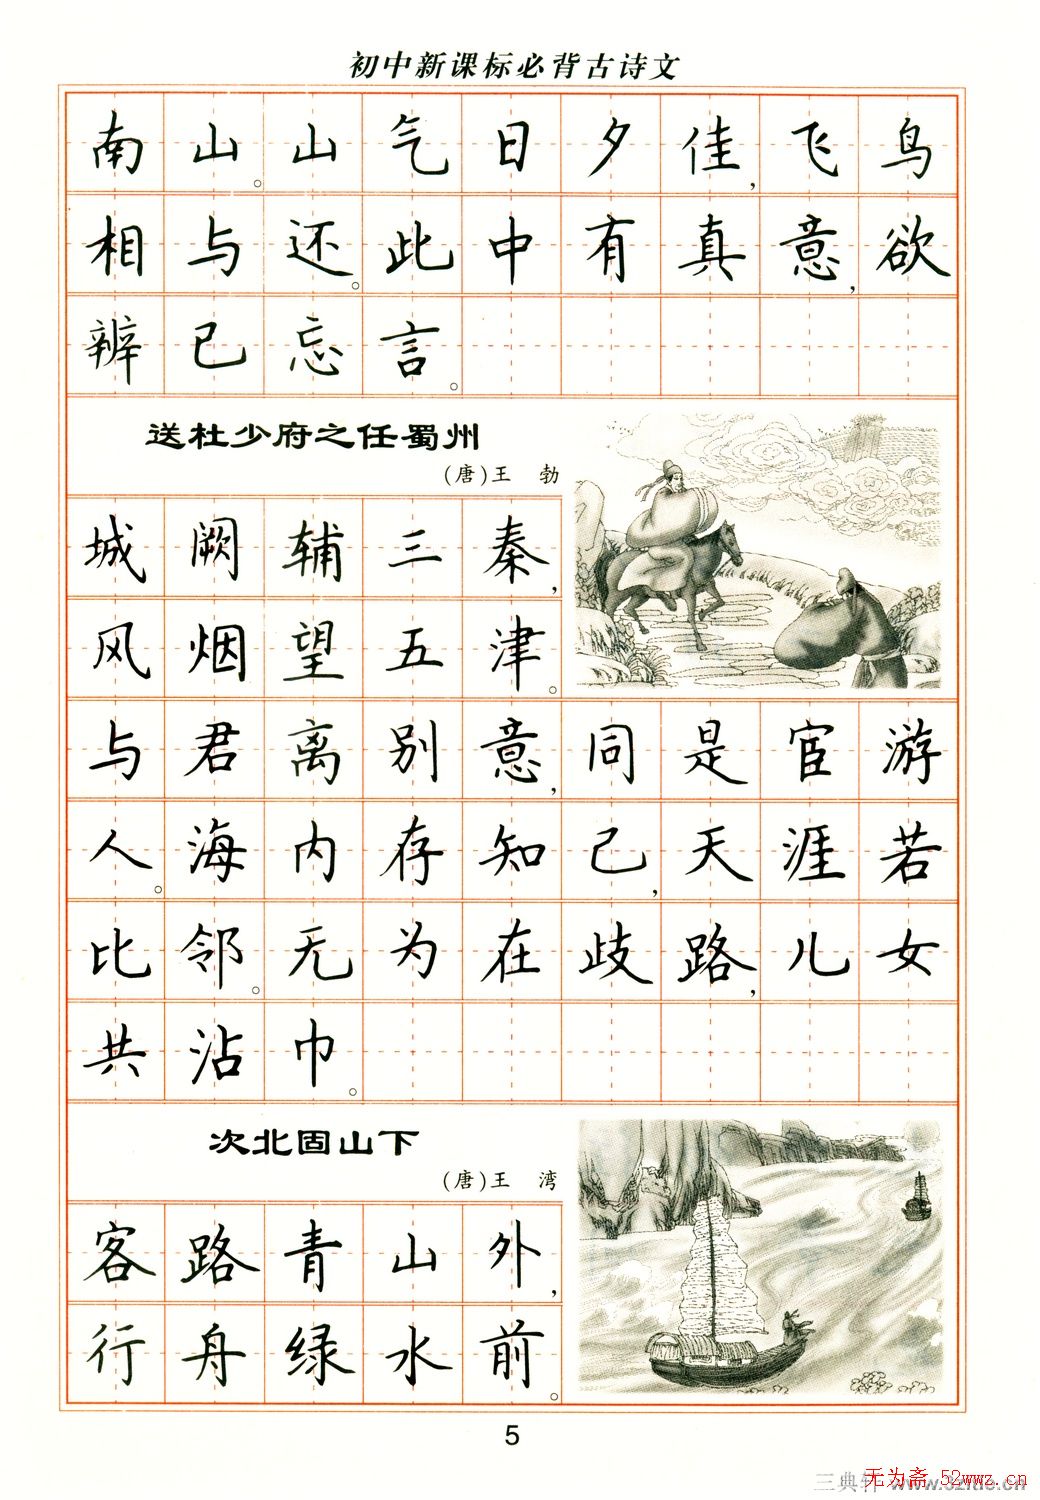 初中新课标必背古诗文
南山。山气日夕佳，飞鸟
相与还。此中有真意，欲
辨已忘言。
送杜少府之任蜀州
(唐)王 勃
城阙辅三秦，
风烟望五津。
与君离别意，同是宦游
人。海内存知己，天涯若
比邻。无为在歧路，儿女
共沾巾。
次北固山下
(唐)王 湾
客路青山外，
行舟绿水前。
5
三典轩 www.52ltte.cn
无为斋 52wwz.cn